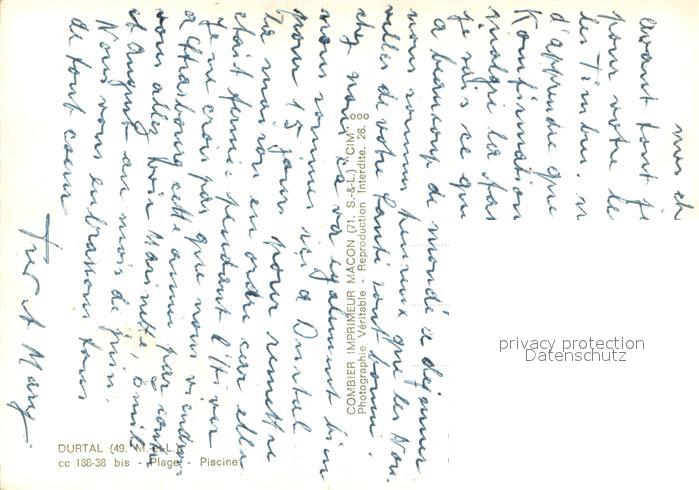 mes ch
avant tout je
pour votre le
les Timbres. n
d'apprendre que
Konfirmation
malgré la
je sais ce que
a beaucoup de monde a dejeuner
nous sommes heureux que les Nou-
velles de votre Santé sont bonne.
chez nous ça va egalement bien
nous sommes ici a Durtal
pour 15 jours pour remettre
la maison en ordre car elle
etait fermé pendant l'hiver
Je ne crois pas que nous viendrons
a Strasbourg cette année par contre
vous allez voir Marinette, Emile
et August au mois de juin.
Nous vous embrassons tous
de tout coeur
Fred et Mary
COMBIER IMPRIMEUR MACON (71. S.-&-L.) "CIM"
Photographie Véritable - Reproduction Interdite. 26.
DURTAL (49. M.-&-L.)
cc 188-38 bis - Plage - Piscine
privacy protection
Datenschutz